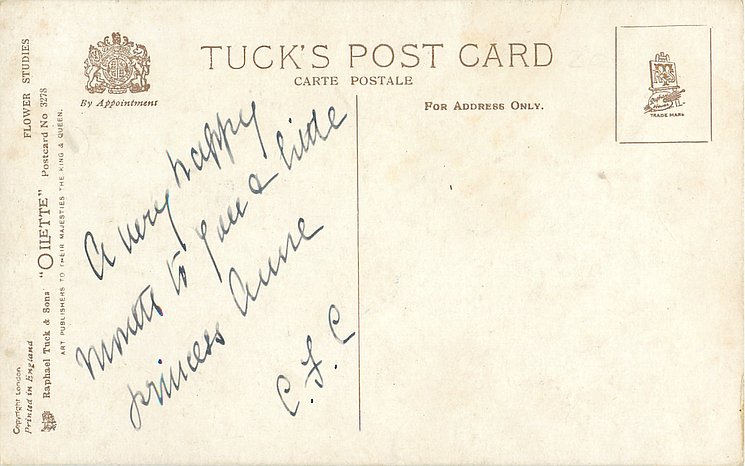 TUCK'S POST CARD
CARTE POSTALE
By Appointment
FOR ADDRESS ONLY.
TRADE MARK
FLOWER STUDIES
Raphael Tuck & Sons "OILETTE" Postcard No 3278
ART PUBLISHERS TO THEIR MAJESTIES THE KING & QUEEN.
Copyright London
Printed in England
A very happy
month to you & little
princess Anne
C. F. C